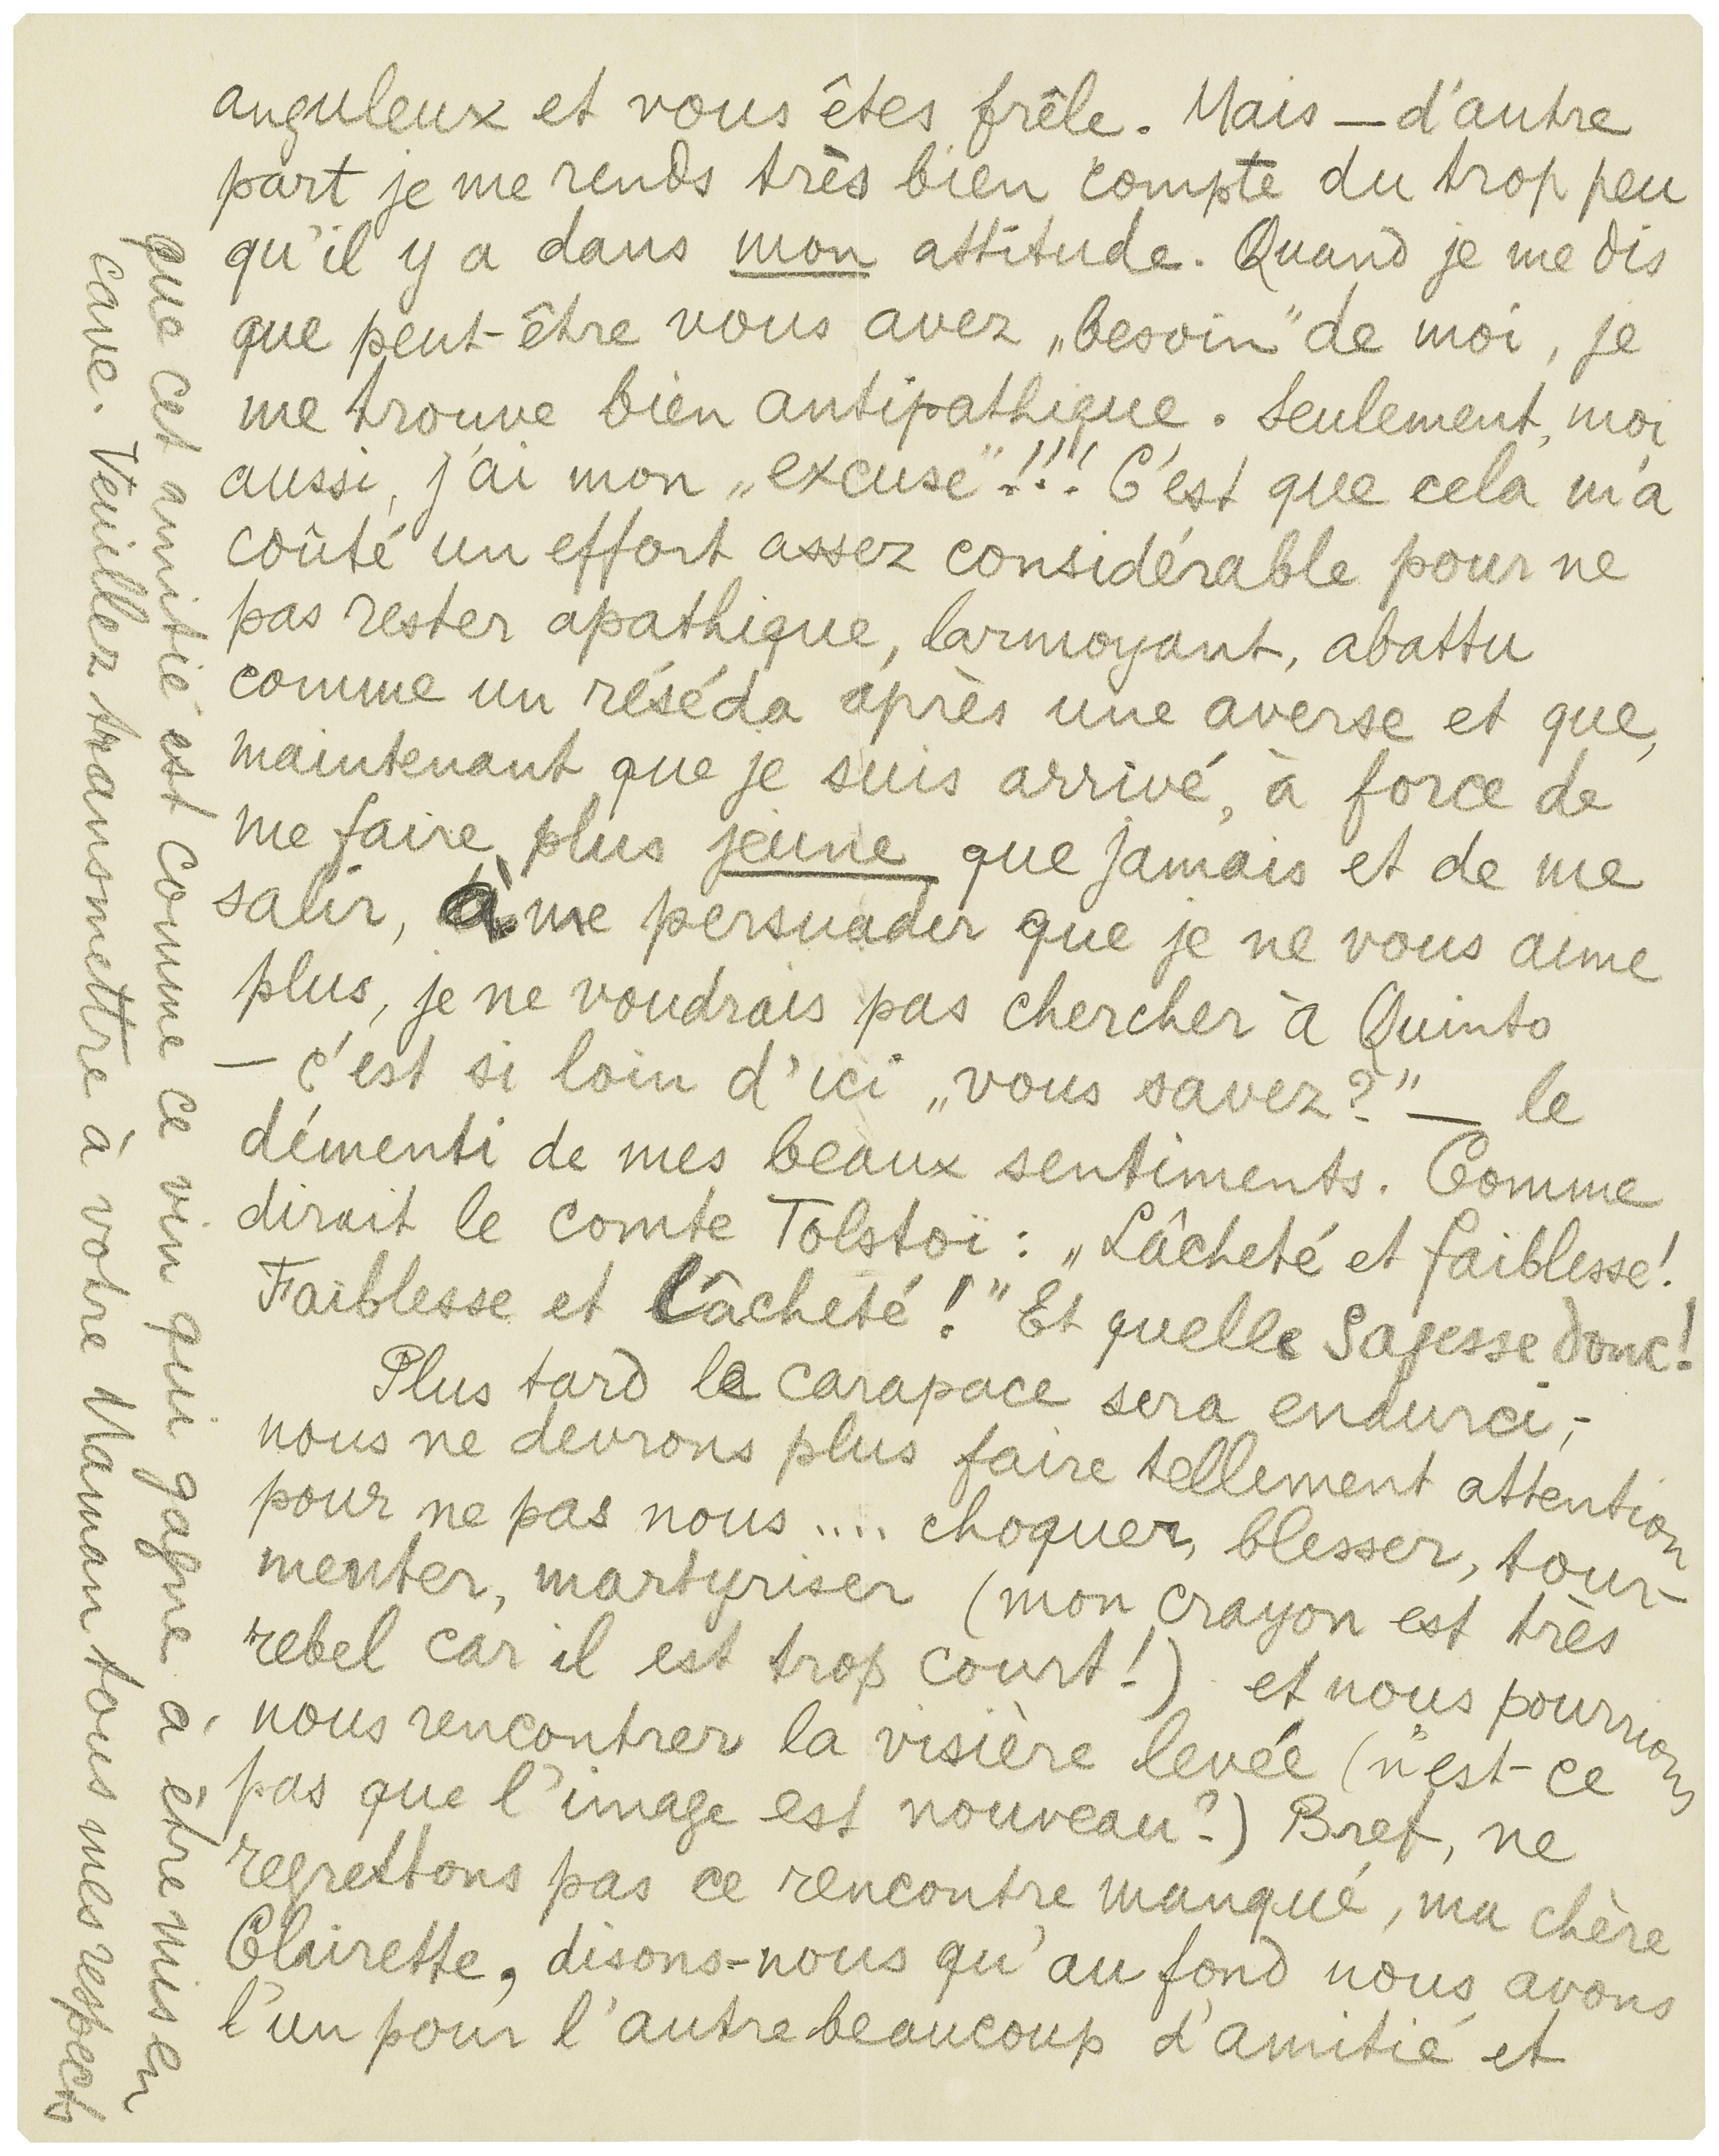 anguleux et vous êtes frêle. Mais — d'autre
part je me rends très bien compte du trop peu
qu'il y a dans mon attitude. Quand je me dis
que peut-être vous avez „besoin" de moi, je
me trouve bien antipathique. Seulement, moi
aussi, j'ai mon „excuse"!!! C'est que cela m'a
coûté un effort assez considérable pour ne
pas rester apathique, larmoyant, abattu
comme un réséda après une averse et que,
maintenant que je suis arrivé, à force de
me faire plus jeune que jamais et de me
salir, à me persuader que je ne vous aime
plus, je ne voudrais pas chercher à Quinto
— c'est si loin d'ici „vous savez?" — le
démenti de mes beaux sentiments. Comme
dirait le comte Tolstoï : „Lâcheté et faiblesse!
Faiblesse et lâcheté!" Et quelle Sagesse donc!
Plus tard la carapace sera endurci,-
nous ne devrons plus faire tellement attention
pour ne pas nous .... choquer, blesser, tour-
menter, martyriser (mon crayon est très
rebel car il est trop court!) et nous pourrions
nous rencontrer la visière levée (n'est-ce
pas que l'image est nouveau?) Bref, ne
regrettons pas ce rencontre manqué, ma chère
Clairette, disons-nous qu'au fond nous avons
l'un pour l'autre beaucoup d'amitié et
que cet amitié est comme ce vin qui gagne à être mis en
cave. Veuillez transmettre à votre Maman tous mes respects